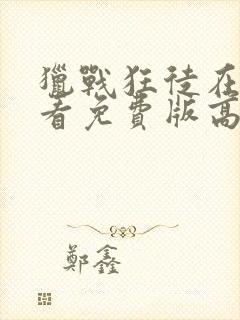 獵戰狂徒在
看免費版高
鄭鑫